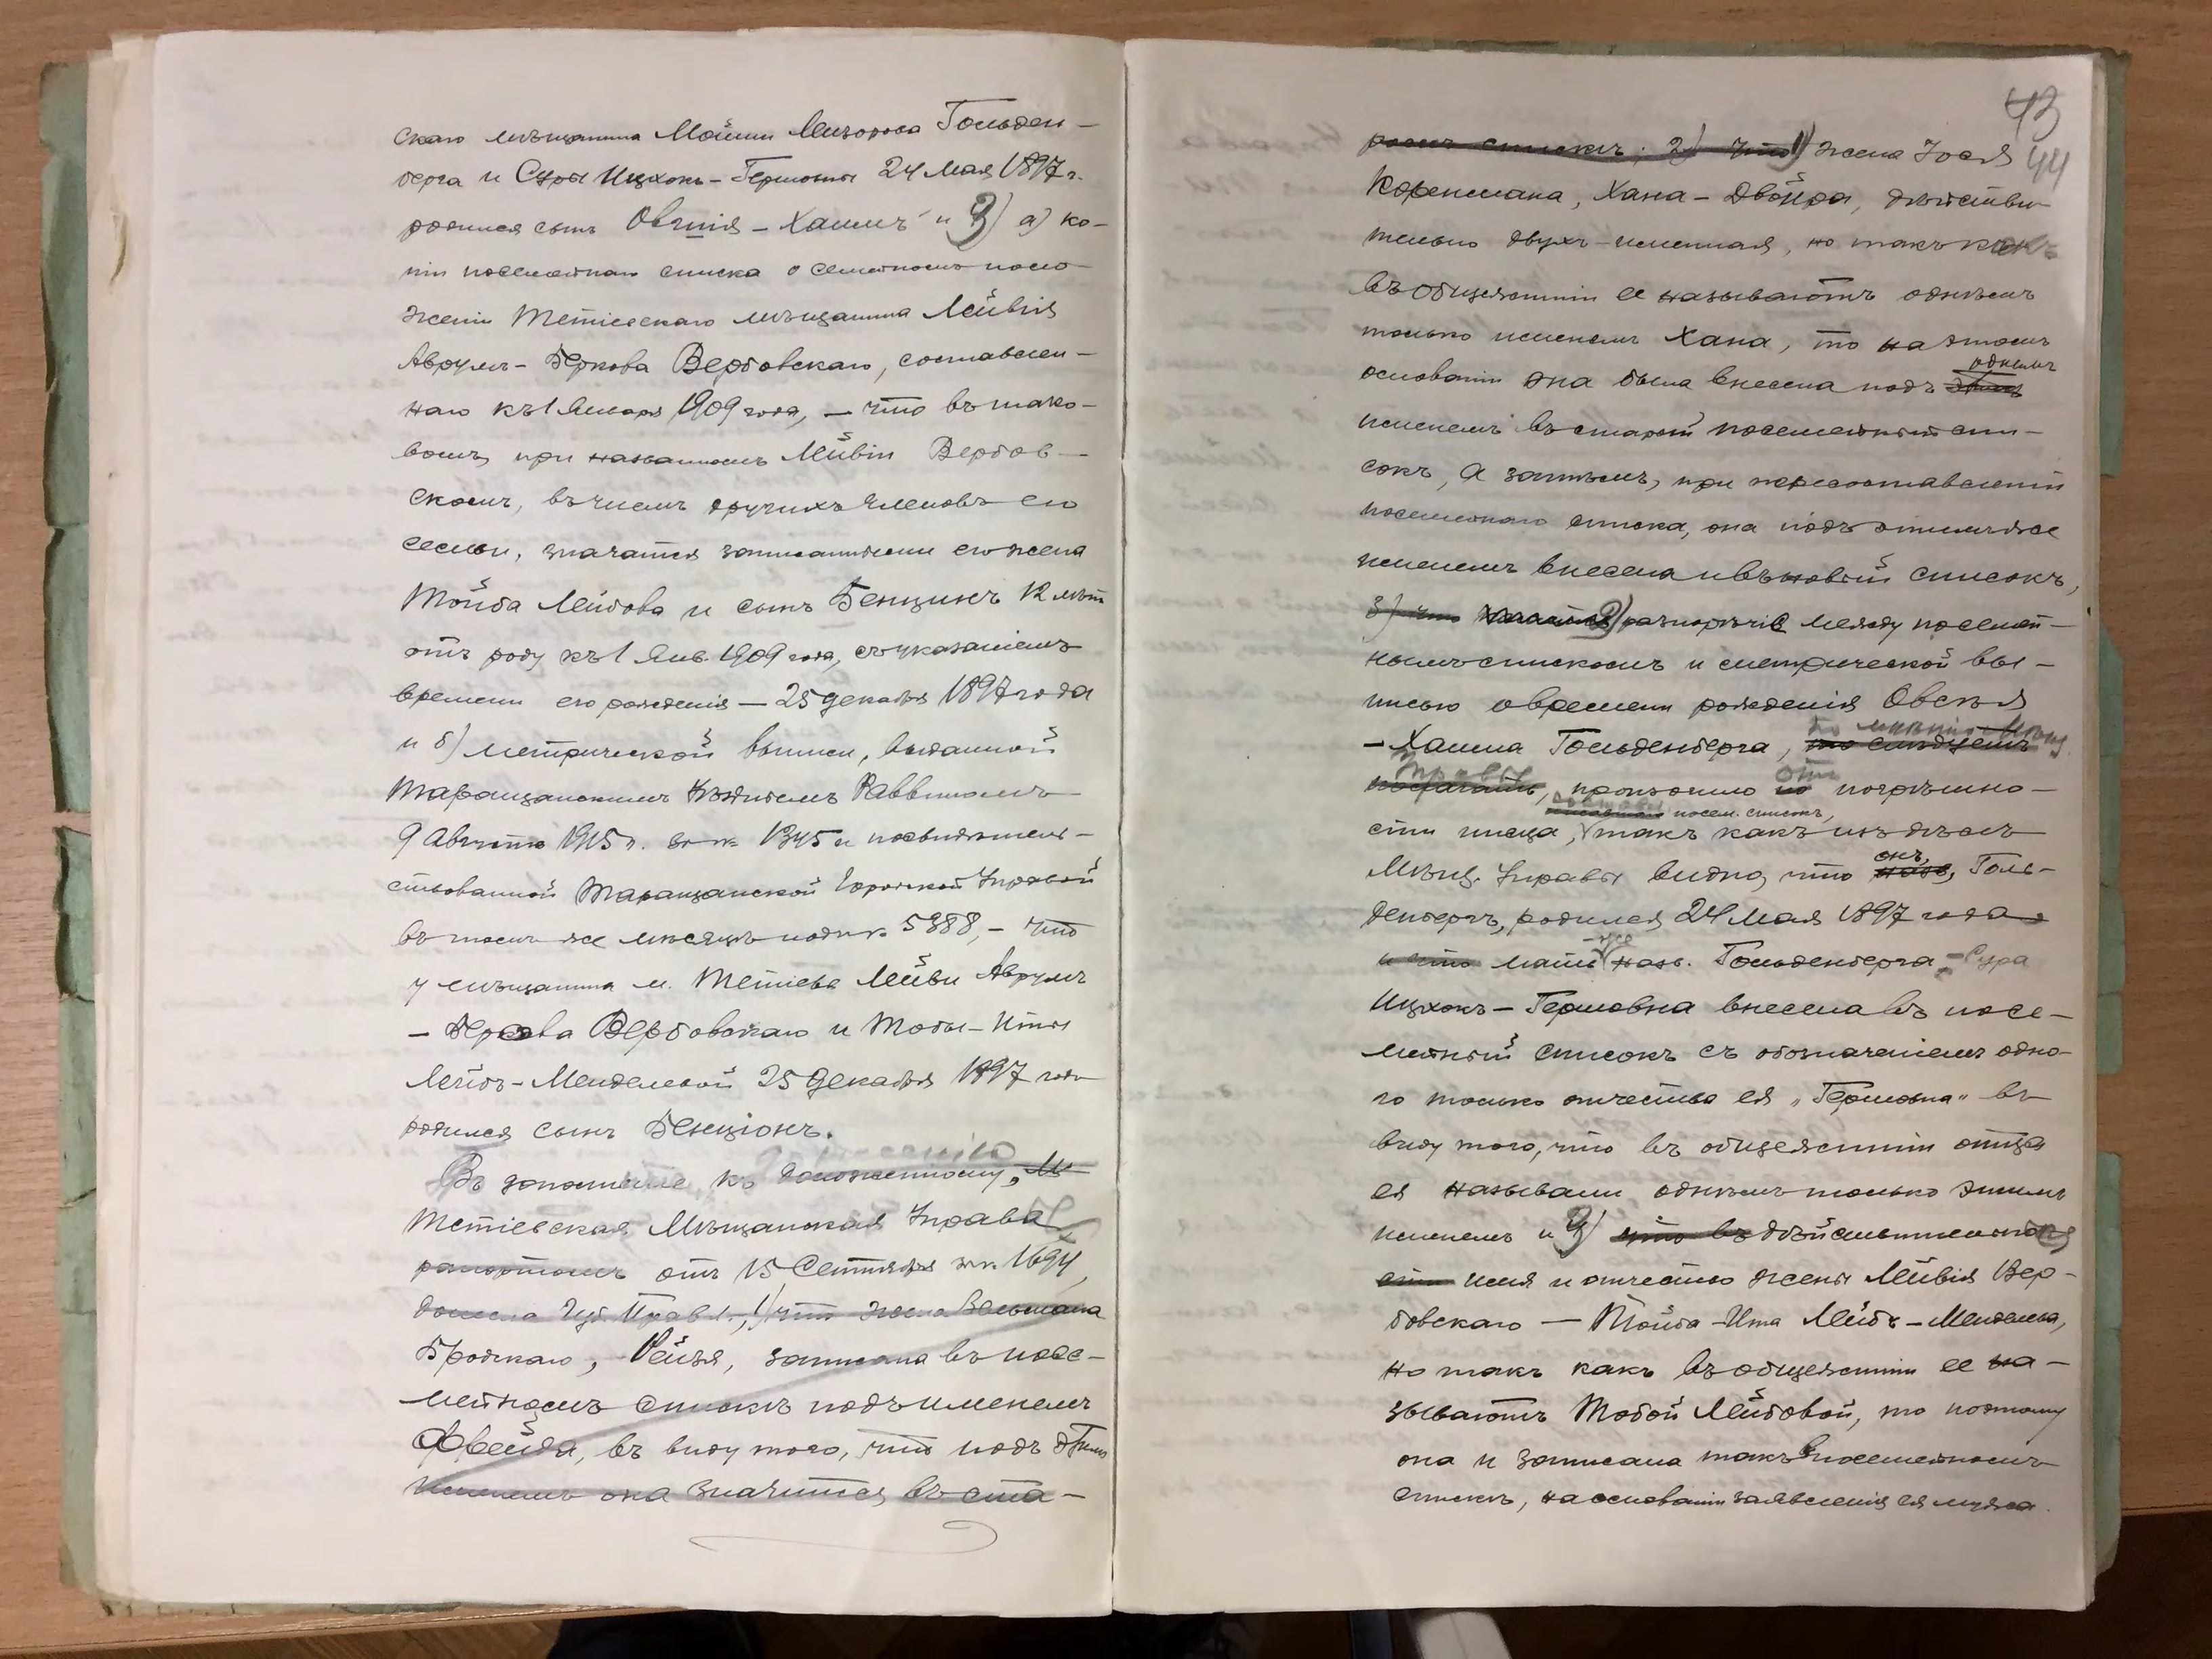 скаго мѣщанина Мошки Лейзорова Гольден-
берга и Суры Ицхокъ-Гершовны 24 Мая 1897 г.
родился сынъ Овшія-Хаимъ и 3) а) ко-
піи посемейнаго списка о семейномъ поло-
женіи Тетіевскаго мѣщанина Лейвія
Аврумъ-Беркова Вербовскаго, составлен-
наго къ 1 Января 1909 года, - что въ тако-
вомъ, при названномъ Лейвіи Вербов-
скомъ, въ числѣ другихъ членовъ его
семьи, значатся записанными его жена
Тойба Лейбова и сынъ Бенцинъ 12 лѣтъ
отъ роду къ 1 Янв. 1909 года, съ указаніемъ
времени его рожденія - 25 декабря 1897 года
и б) метрической выписи, выданной
Таращанскимъ Раввиномъ
9 Августа 1915 г. за № 1345 и посвидѣтель-
ствованной Таращанской Городской Управой
въ томъ же мѣсяцѣ под № 5388, - что
у мѣщанина м. Тетіева Лейви Аврумъ
- Беркова Вербовскаго и Тобы-Иты
Лейбъ-Менделевой 25 Декабря 1897 года
родился сынъ Бенціонъ.
Въ дополненіе къ доложенному,
Тетіевская Мѣщанская Управа
рапортомъ отъ 15 Сентября № 1694,
донесла Губ. Правл., 1) что жена Вольмана
Бродскаго, Рейзя, записана въ посе-
мейномъ спискѣ подъ именемъ
Фрейда, въ виду того, что подъ этимъ
именемъ она значится въ ста-
43
44
ромъ спискѣ; 2) что 1) жена Іося
Коренмана, Хана-Двойра, дѣйстви-
тельно двухъ-именная, но такъ какъ
въ общежитіи ее называютъ однимъ
только именемъ Хана, то на этомъ
однимъ
основаніи она была внесена подъ этимъ
именемъ въ старый посемейный спи-
сокъ, а затѣмъ, при пересоставленіи
посемейнаго списка, она подъ этимъ же
именемъ внесена и въ новый списокъ,
3) что 2) разнорѣчіе между посемей-
нымъ спискомъ и метрической вы-
писью о времени рожденія Овсія
по мнѣнію Мѣщ.
-Хаима Гольденберга, то слѣдуетъ
Управы отъ
полагать, произошло по погрѣшно-
посем. списокъ,
сти писца, такъ какъ изъ дѣлъ
онъ,
Мѣщ. Управы видно, что назв. Голь-
денбергъ, родился 24 Мая 1897 года
же
и что мать назв. Гольденберга - Сура
Ицхокъ-Гершовна внесена въ посе-
мейный списокъ съ обозначеніемъ одно-
го только отчества ея „Гершовна“ въ
виду того, что въ общежитіи отца
ея называли однимъ только этимъ
именемъ и 3) что въ дѣйствительно
сти имя и отчество жены Лейвія Вер-
бовскаго - Тойба-Ита Лейбъ-Менделева,
но такъ какъ въ общежитіи ее на-
зываютъ Тобой Лейбовой, то поэтому
она и записана такъ въ посемейномъ
спискѣ, на основаніи заявленія ея мужа.